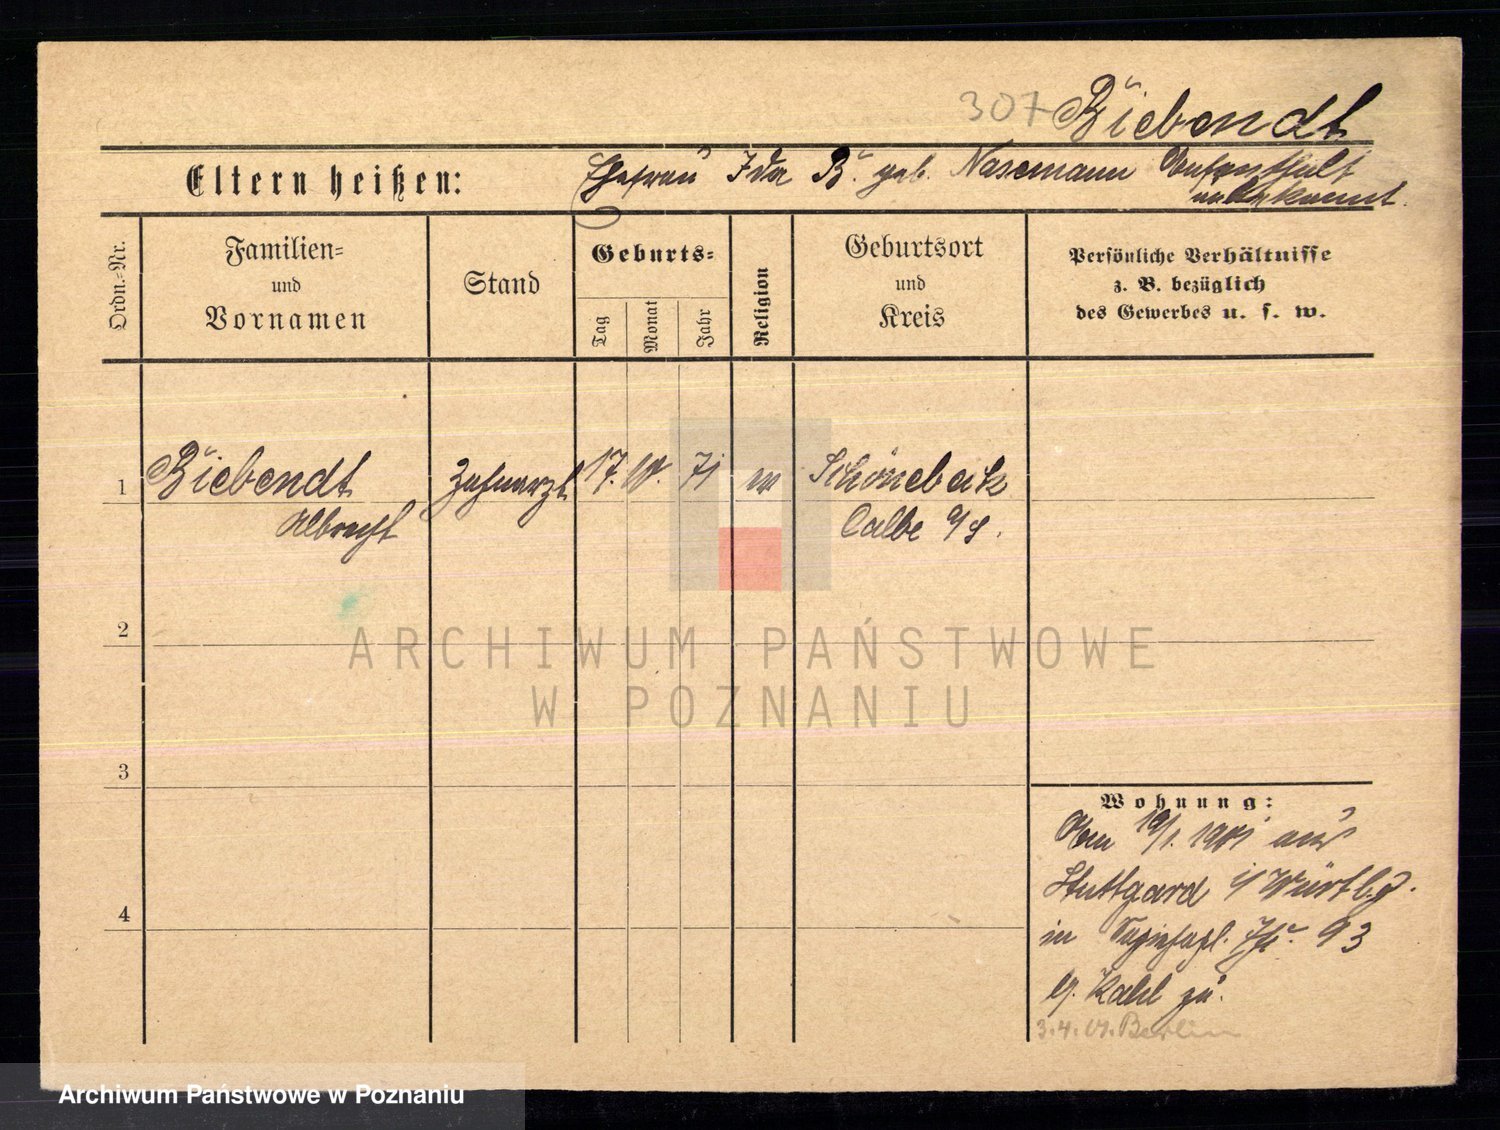 307 Biebendt
Eltern heißen: Ehefrau Ida B. geb. Nasemann Aufenthalt
unbekannt.
Ordn.=Nr.
Familien=
und
Vornamen
Stand
Geburts=
Tag
Monat
Jahr
Religion
Geburtsort
und
Kreis
Persönliche Verhältnisse
z. B. bezüglich
des Gewerbes u. s. w.
1 Biebendt Zahnarzt 17. 71 Schönebeck
Albrecht Calbe a/S.
2
3
4
Wohnung:
19/1. 1901 aus
Stuttgard i/ Württbg.
in 93
b. Kahl zu.
3.4.01. Berlin
ARCHIWUM PAŃSTWOWE
W POZNANIU
Archiwum Państwowe w Poznaniu